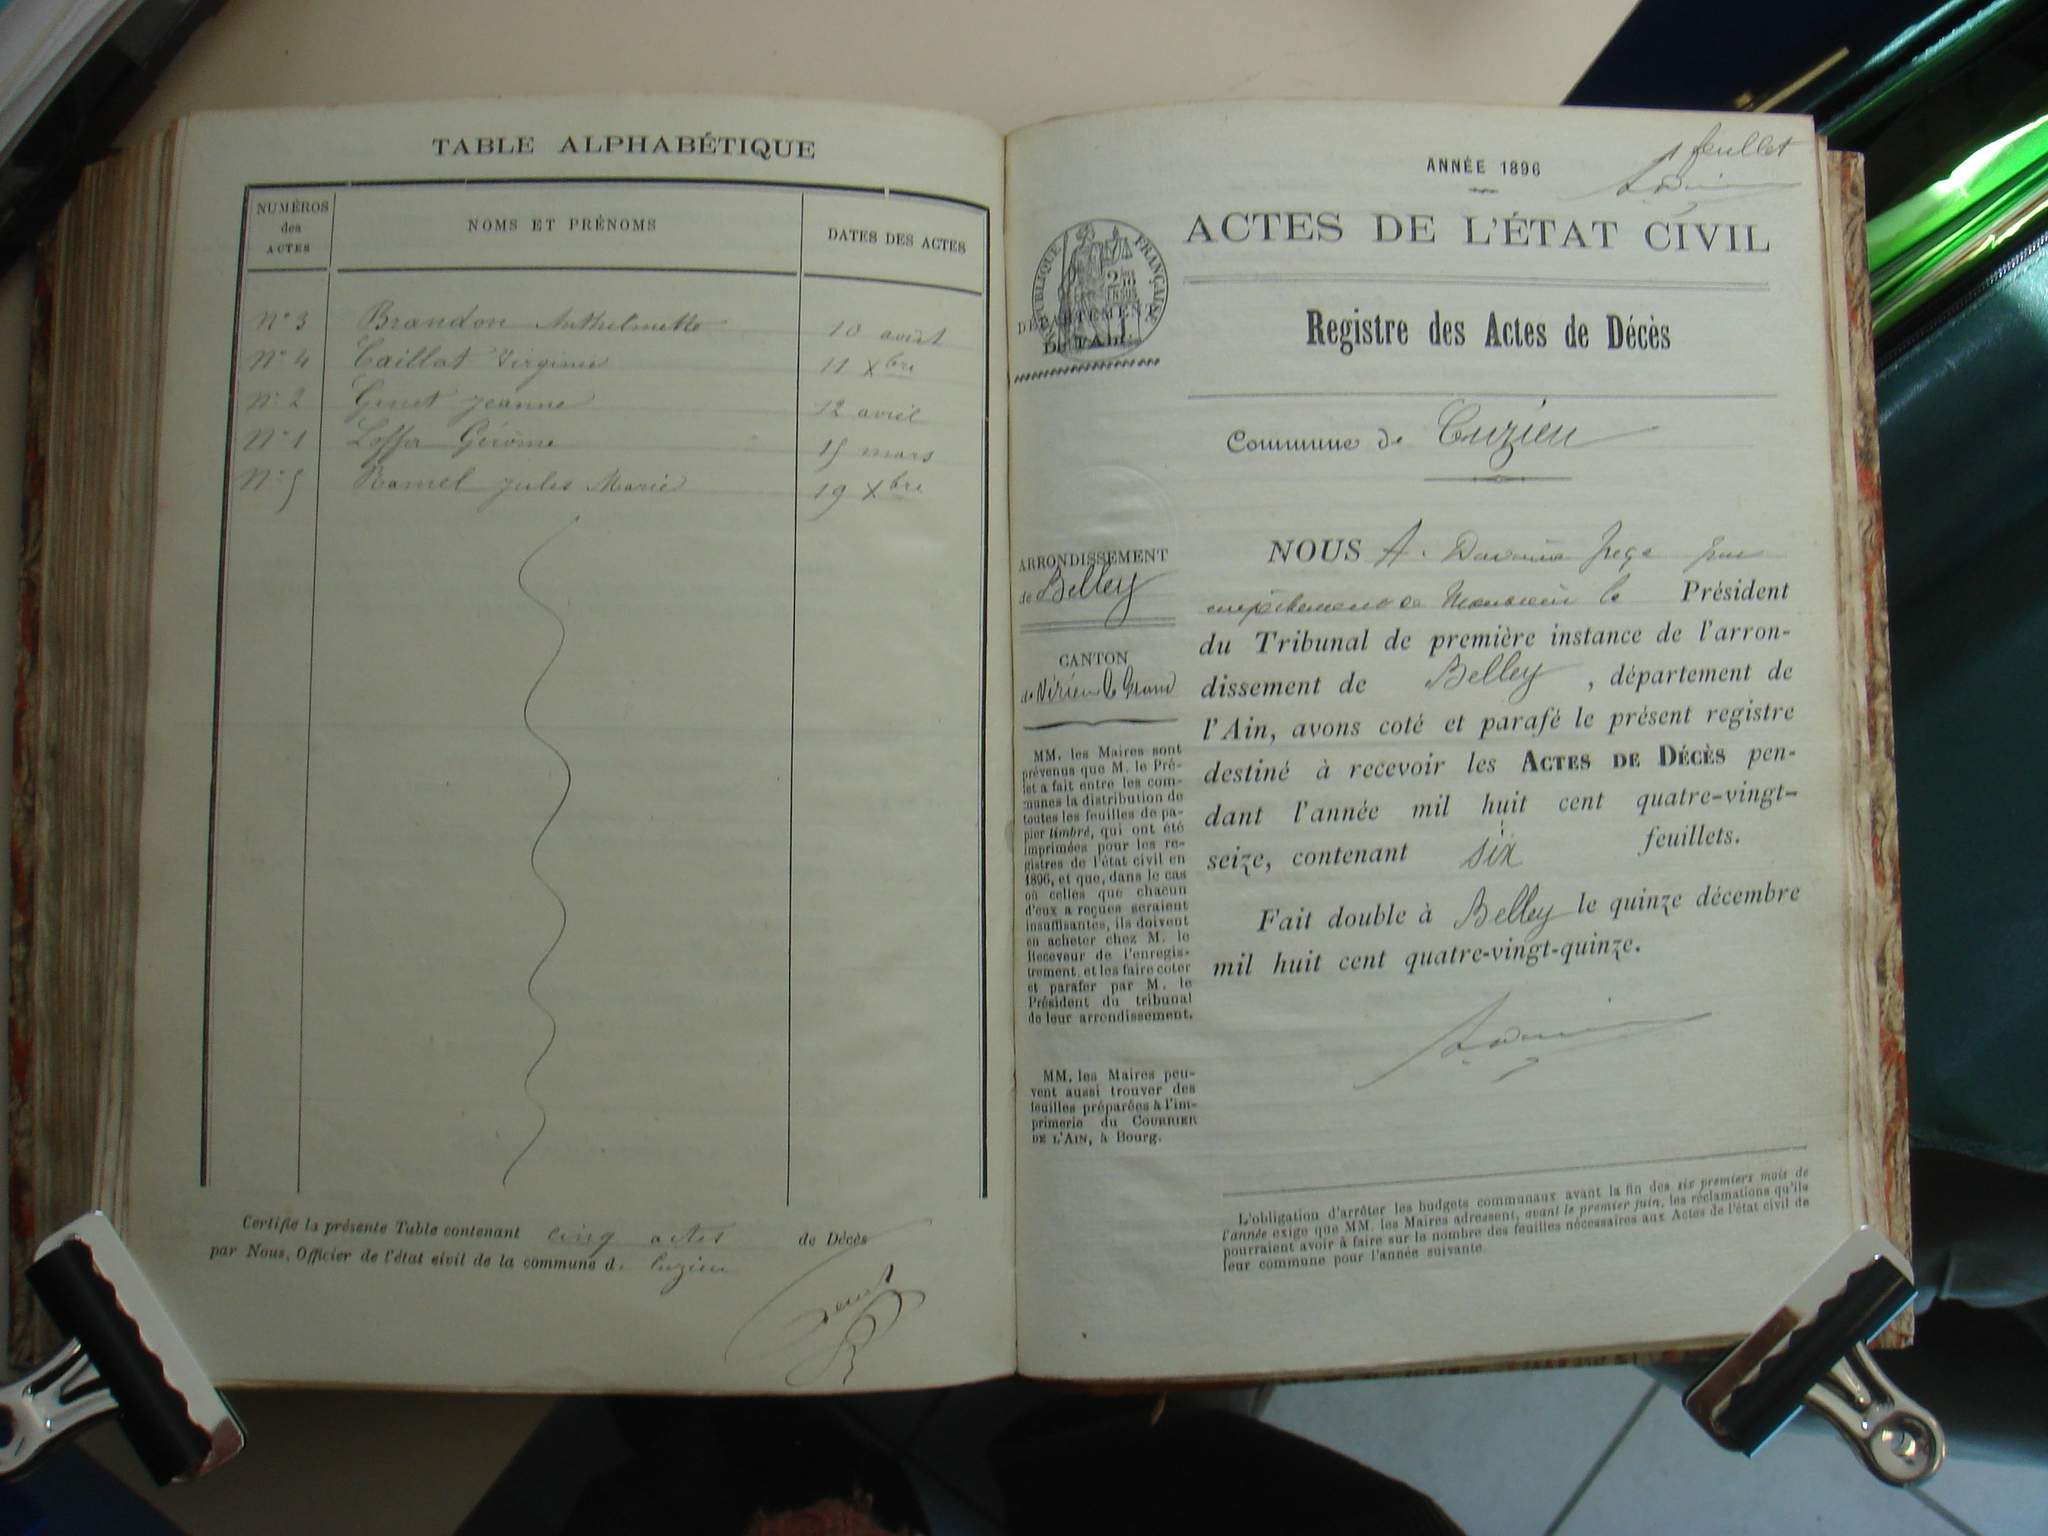 TABLE ALPHABÉTIQUE
NUMÉROS
des
ACTES
NOMS ET PRÉNOMS
DATES DES ACTES
N° 3 Brandon Anthelmette 10 août
N° 4 Caillat Virginie 11 Xbre
N° 2 Genet Jeanne 12 avril
N° 1 Loffa Gérôme 15 mars
N° 5 Ramel Jules Marie 19 Xbre
Certifie la présente Table contenant cinq actes de Décès
par Nous, Officier de l'état civil de la commune de Cuzieu
1 feuillet
ANNÉE 1896
ACTES DE L'ÉTAT CIVIL
RÉPUBLIQUE FRANÇAISE
DÉPARTEMENT
De l'Ain
Registre des Actes de Décès
Commune de Cuzieu
ARRONDISSEMENT
de Belley
CANTON
de Virieu le Grand
MM. les Maires sont
prévenus que M. le Pré-
fet a fait entre les com-
munes la distribution de
toutes les feuilles de pa-
pier timbré, qui ont été
imprimées pour les re-
gistres de l'état civil en
1896, et que, dans le cas
où celles que chacun
d'eux a reçues seraient
insuffisantes, ils doivent
en acheter chez M. le
Receveur de l'enregis-
trement, et les faire coter
et parafer par M. le
Président du tribunal
de leur arrondissement.
MM. les Maires peu-
vent aussi trouver des
feuilles préparées à l'im-
primerie du COURRIER
DE L'AIN, à Bourg.
NOUS A. Juge pour
empêchement de Monsieur le Président
du Tribunal de première instance de l'arron-
dissement de Belley, département de
l'Ain, avons coté et parafé le présent registre
destiné à recevoir les ACTES DE DÉCÈS pen-
dant l'année mil huit cent quatre-vingt-
seize, contenant six feuillets.
Fait double à Belley le quinze décembre
mil huit cent quatre-vingt-quinze.
L'obligation d'arrêter les budgets communaux avant la fin des six premiers mois de
l'année exige que MM. les Maires adressent, avant le premier juin, les réclamations qu'ils
pourraient avoir à faire sur le nombre des feuilles nécessaires aux Actes de l'état civil de
leur commune pour l'année suivante.